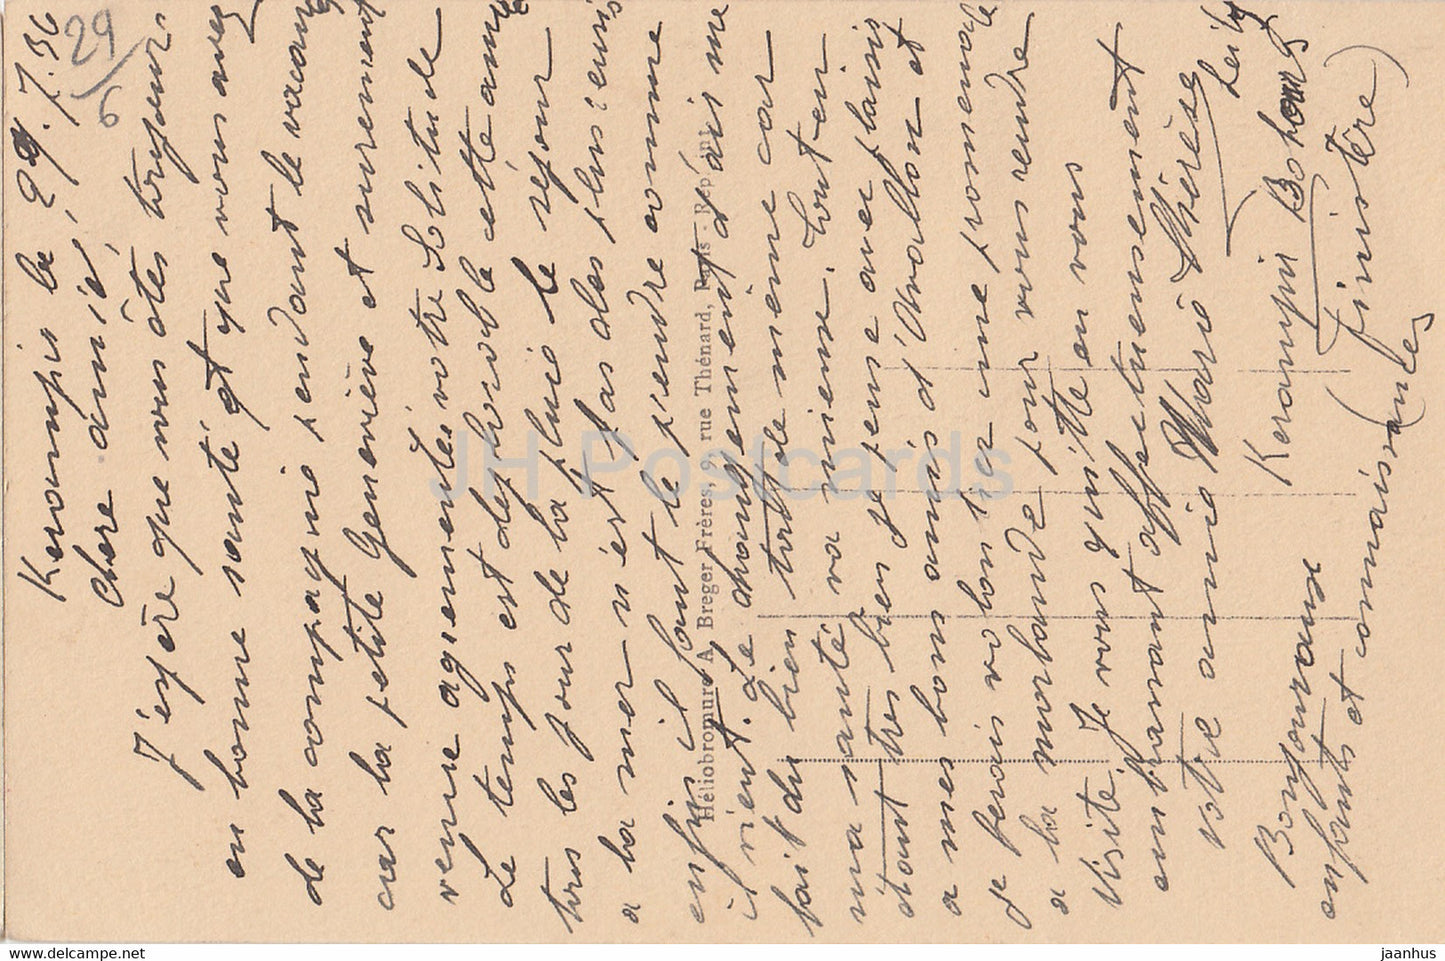 Kerampir le 29.7.36
29/6
Chère amie,
J'espère que vous êtes toujours
en bonne santé et que vous avez
de la compagnie pendant le vacances
car la petite Geneviève est surement
venue agrementer votre Solitude
Le temps est deplorable cette année
tous les jour de la pluie le sejour
a la mer n'est pas des plus reussis
enfin il faut le prendre comme
il vient. Le changement d'air me
fait du bien tout de meme car
ma santé va mieux. Tout en
étant tres bien je pense avec plaisir
a mes bons amis d'Avallon et
je ferais volontier une promenade
a la marlande pour vous rendre
visite. Je vous quitte en vous
embrassant affectueusement
votre amie Marie Thérèse
Kerampir Bohars
(Finistère)
Bonjour aux
enfants et connaissances
Héliobromure A. Breger Frères, 9, rue Thénard, Paris - Rep. Int.
JH Postcards
www.hippostcard.com
jaanhus